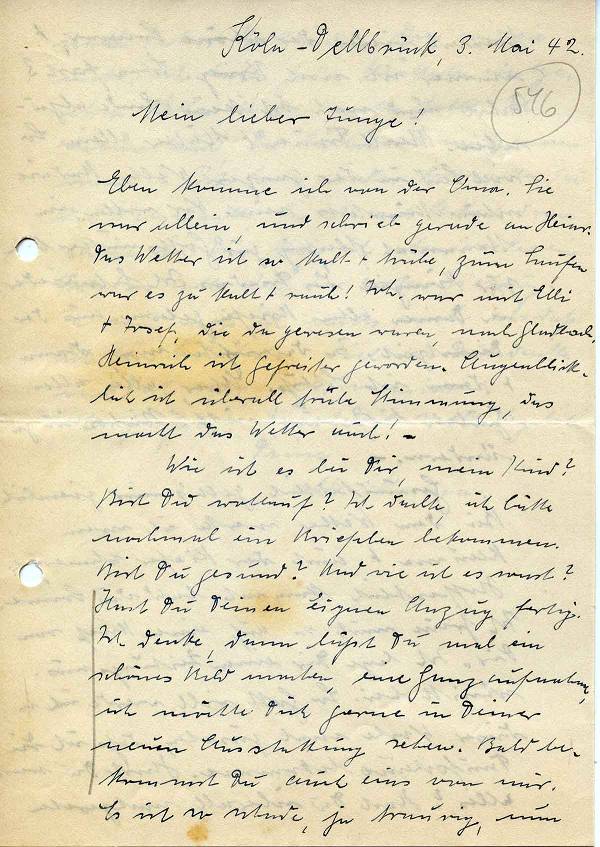 Köln-Dellbrück, 3. Mai 42.
546
Mein lieber Junge!
Eben komme ich von der Oma. Sie
war allein, und schrieb gerade an Heinr.
Das Wetter ist so kalt + trübe, zum Laufen
war es zu kalt + rauh! Joh. war mit Elli
+ Josef, die da gewesen waren, nach Gladbach.
Heinrich ist Gefreiter geworden. Augenblick-
lich ist überall trübe Stimmung, das
macht das Wetter auch! –
Wie ist es bei Dir, mein Kind?
Bist Du wohlauf? Ich dachte, ich hätte
nochmal ein Briefchen bekommen.
Bist Du gesund? Und wie ist es sonst?
Hast Du Deinen eignen Anzug fertig.
Ich denke, dann läßt Du mal ein
schönes Bild machen, eine Ganzaufnahme,
ich möchte Dich gerne in Deiner
neuen Ausstattung sehen. Bald be-
kommst Du auch eins von mir.
Es ist so schade, ja traurig, nun